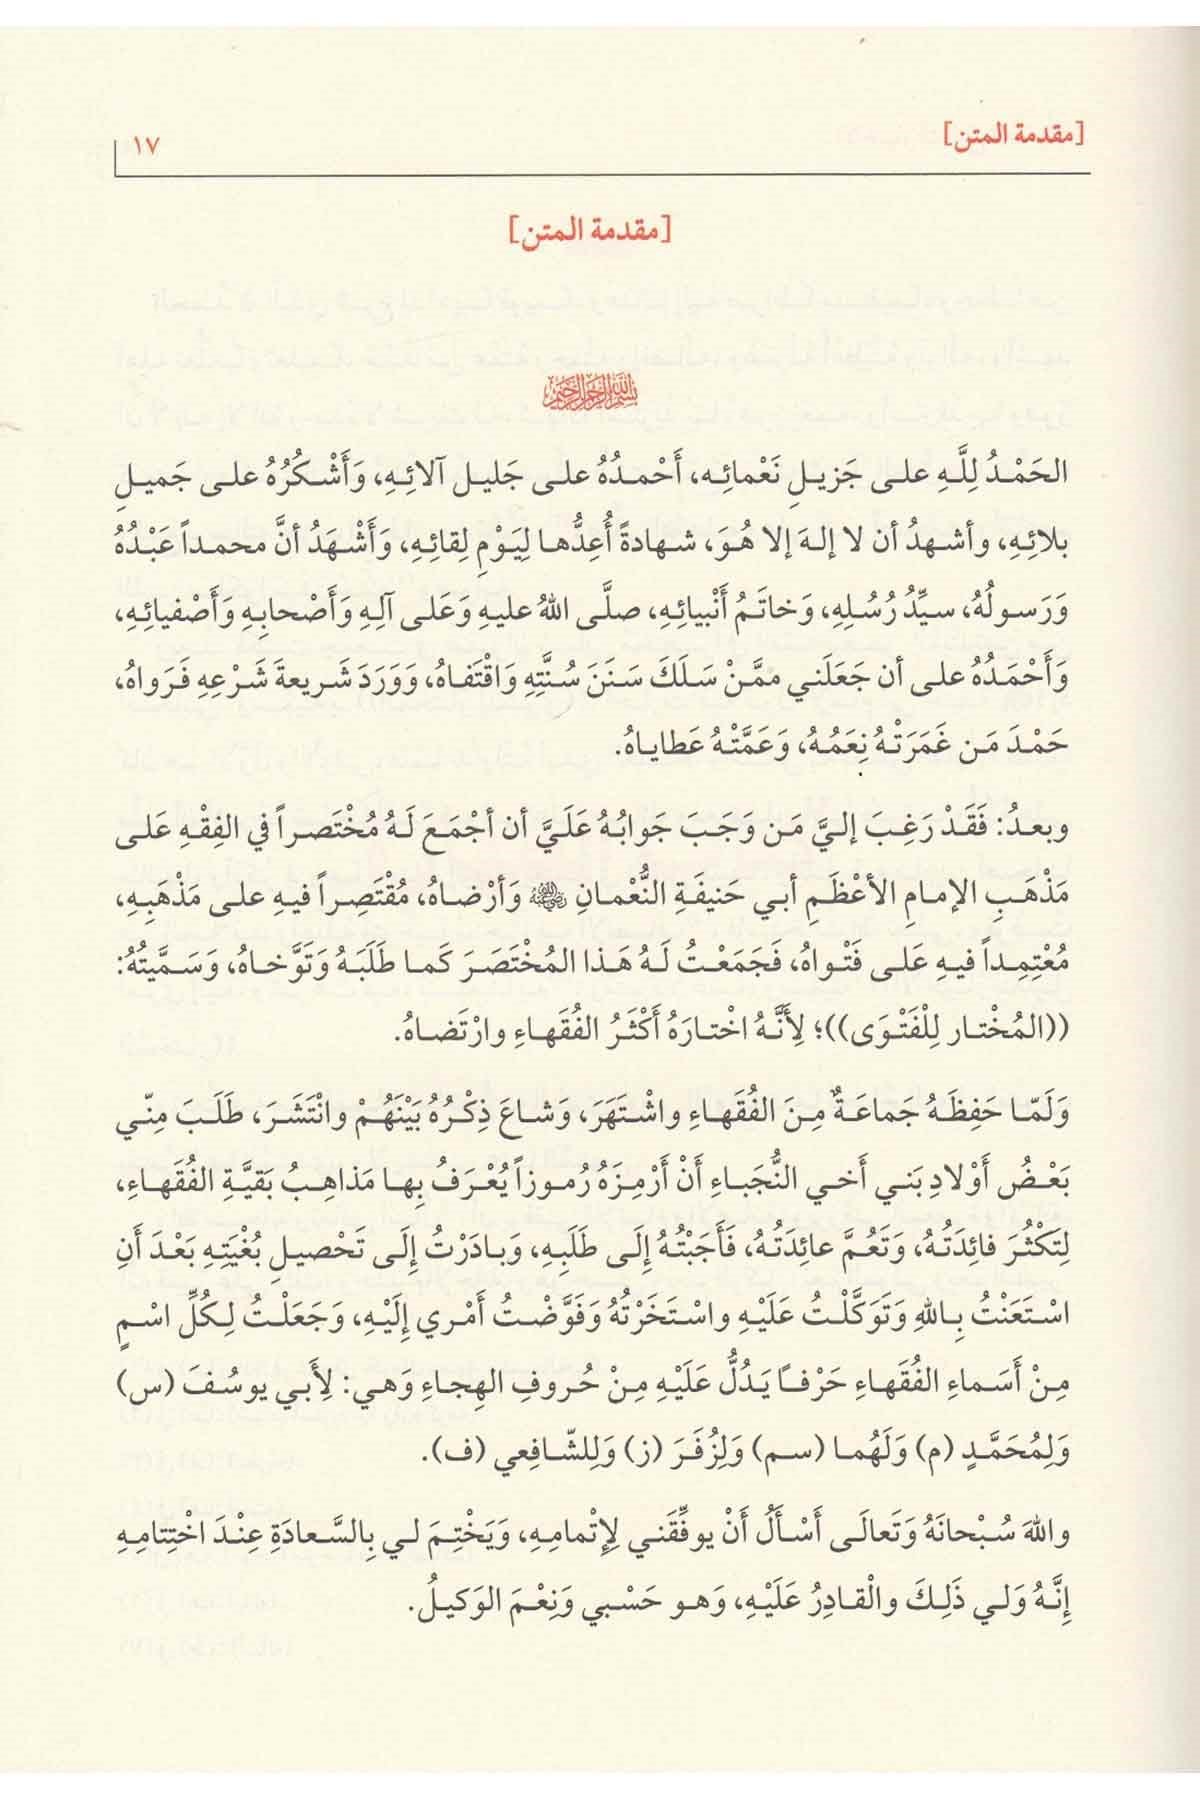 [مقدمة المتن]
١٧
[مقدمة المتن]
بسم الله الرحمن الرحيم
الحَمْـدُ لِلَّـهِ علـى جَزيـلِ نَعْمائِـه، أَحْمـدُهُ علـى جَليـل آلائِـهِ، وَأَشْـكُرُهُ علـى جَميـلِ
بلائِـهِ، وأشـهدُ أن لا إلـهَ إلا هُـوَ، شـهادةً أُعِدُّهـا لِيَـوْمِ لِقائِـهِ، وَأَشْـهَدُ أنَّ محمـداً عَبْـدُهُ
وَرَسـولُهُ، سـيِّدُ رُسُـلِهِ، وَخاتَـمُ أَنْبيائِـهِ، صلَّـى اللهُ عليـهِ وَعَلـى آلِـهِ وَأَصْحابِـهِ وَأَصْفيائِـهِ،
وَأَحْمَـدُهُ علـى أن جَعَلَنـي ممَّـنْ سَـلَكَ سَـنَنَ سُـنَّتِهِ وَاقْتَفـاهُ، وَوَرَدَ شَـريعةَ شَـرْعِهِ فَـرَواهُ،
حَمْـدَ مَـن غَمَرَتْـهُ نِعَمُـهُ، وَعَمَّتْـهُ عَطايـاهُ.
وبعـدُ: فَقَـدْ رَغِـبَ إلـيَّ مَـن وَجَـبَ جَوابُـهُ عَلَـيَّ أن أجْمَـعَ لَـهُ مُخْتَصـراً في الفِقْـهِ عَلـى
مَذْهَـبِ الإمـامِ الأعْظَـمِ أبـي حَنيفَـةِ النُّعْمـانِ رضي الله عنه وَأرْضـاهُ، مُقْتَصِـراً فيـهِ علـى مَذْهَبِـهِ،
مُعْتِمِـداً فيـهِ عَلـى فَتْـواهُ، فَجَمَعْـتُ لَـهُ هَـذا المُخْتَصَـرَ كَمـا طَلَبَـهُ وَتَوَّخـاهُ، وَسَـمَّيتُهُ:
((المُخْتـار لِلْفَتْـوَى))؛ لِأَنَّـهُ اخْتـارَهُ أَكْثَـرُ الفُقَهـاءِ وارْتَضـاهُ.
وَلَمّـا حَفِظَـهُ جَماعَـةٌ مِـنَ الفُقَهـاءِ واشْـتَهَرَ، وَشـاعَ ذِكْـرُهُ بَيْنَهُـمْ وانْتَشَـرَ، طَلَـبَ مِنّـي
بَعْـضُ أَوْلادِ بَنـي أَخـي النُّجَبـاءِ أَنْ أَرْمِـزَهُ رُمـوزاً يُعْـرَفُ بِهـا مَذاهِـبُ بَقيَّـةِ الفُقَهـاءِ،
لِتَكْثُـرَ فائِدَتُـهُ، وَتَعُـمَّ عائِدَتُـهُ، فَأَجَبْتُـهُ إِلَـى طَلَبِـهِ، وَبـادَرْتُ إِلَـى تَحْصيـلِ بُغْيَتِـهِ بَعْـدَ أَنِ
اسْـتَعَنْتُ بِـاللهِ وَتَوَكَّلْـتُ عَلَيْـهِ واسْـتَخَرْتُهُ وَفَوَّضْـتُ أَمْـري إِلَيْـهِ، وَجَعَلْـتُ لِـكُلِّ اسْـمٍ
مِـنْ أَسَـماءِ الفُقَهـاءِ حَرْفـاً يَـدُلُّ عَلَيْـهِ مِـنْ حُـروفِ الهِجـاءِ وَهـي: لِأَبـي يوسُـفَ (س)
وَلِمُحَمَّـدٍ (م) وَلَهُمـا (سـم) وَلِزُفَـرَ (ز) وَلِلشّـافِعي (ف).
واللهَ سُـبْحانَهُ وَتَعالَـى أَسْـأَلُ أَنْ يوفِّقَنـي لِإتْمامِـهِ، وَيَخْتِـمَ لـي بِالسَّـعادَةِ عِنْـدَ اخْتِتامِـهِ
إِنَّـهُ وَلـي ذَلِـكَ والْقـادِرُ عَلَيْـهِ، وَهـو حَسْـبي وَنِعْـمَ الوَكيـلُ.